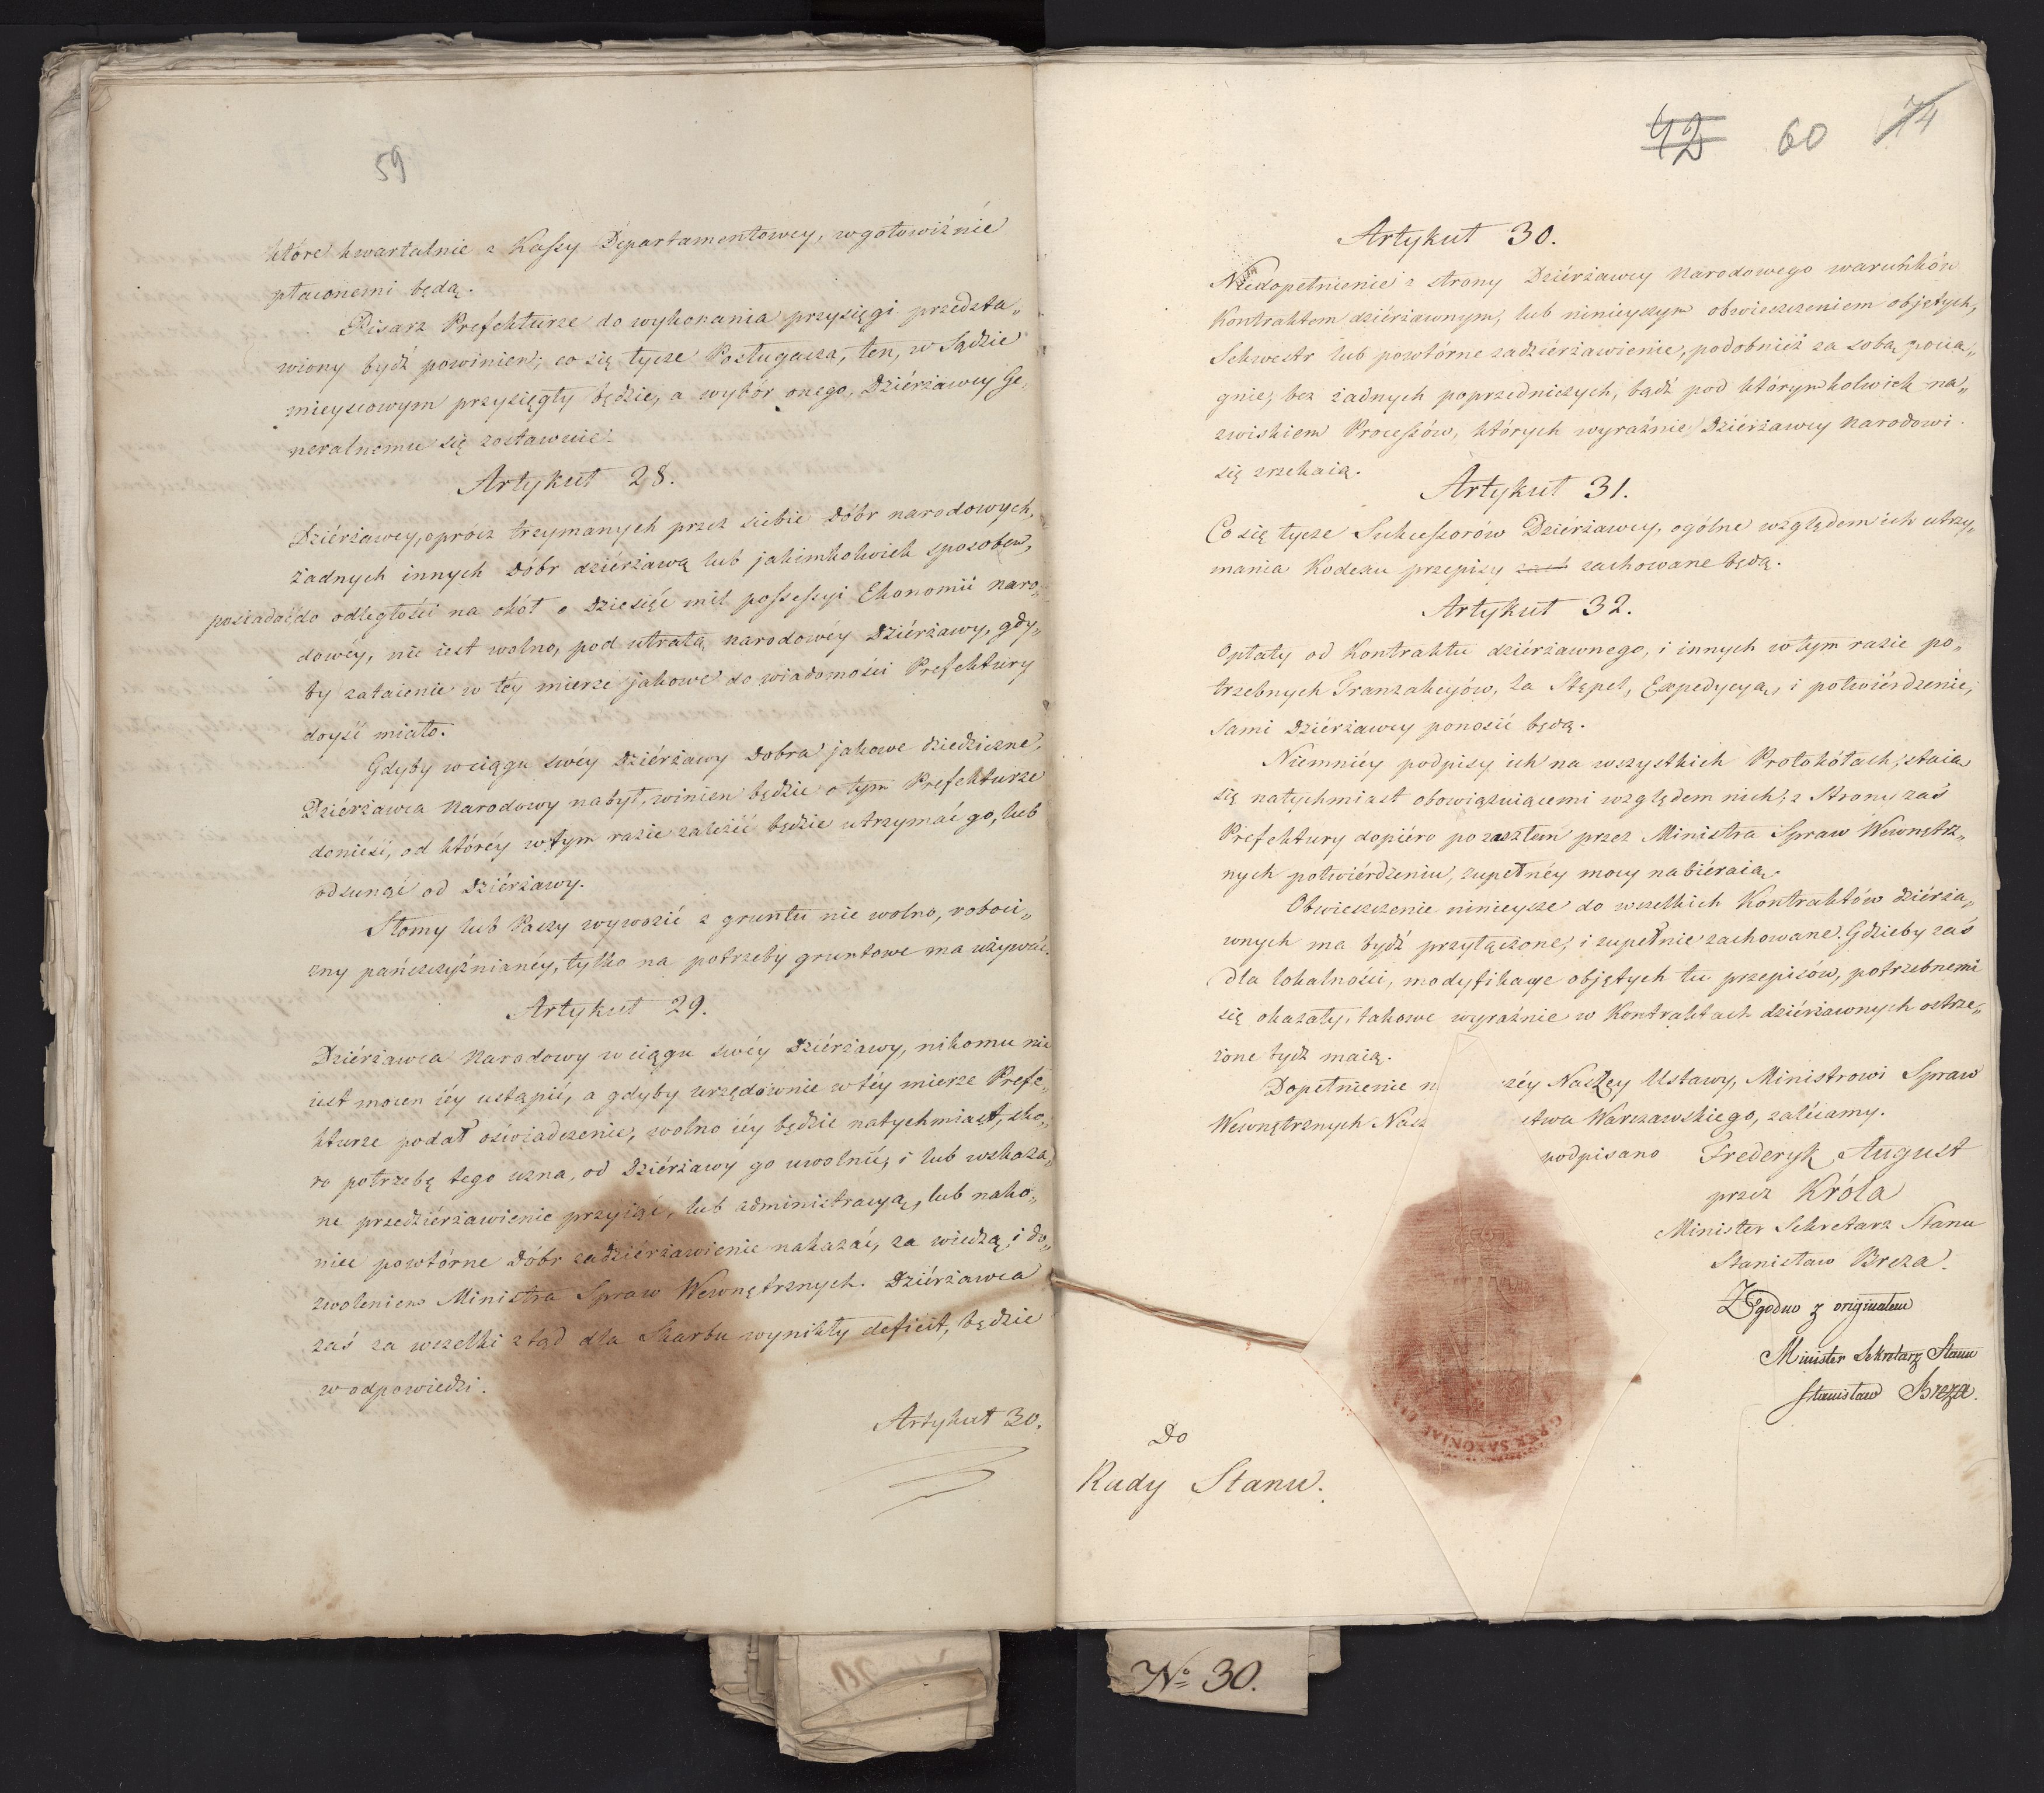 59
które kwartalnie z Kassy Departamentowey, w gotowiźnie
płaconemi będą.
Pisarz Prefekturze do wykonania przysięgi przedsta„
wiony bydź powinien; co się tycze Posługacza, ten, w Sądzie
mieyscowym przysięgły będzie, a wybór onego, Dziérżawcy Ge„
neralnemu się zostawuie.
Artykuł 28.
Dziérżawcy, oprócz trzymanych przez siebie Dóbr narodowych,
żadnych innych Dóbr dziérżawą lub jakimkolwiek sposobem,
posiadać do odległości na okół o Dziesięć mil possessyi Ekonomii naro„
dowéy, nie iest wolno, pod utratą narodowéy Dziérżawy, gdy„
by zataienie w tey mierze jakowe do wiadomości Prefektury
doyść miało.
Gdyby w ciągu swéy Dziérżawy Dobra jakowe dziedziczne,
Dziérżawca Narodowy nabył, winien będzie o tym Prefekturze
donieść, od któréy w tym razie zależéć będzie utrzymać go, lub
odsunąć od Dziérżawy.
Słomy lub Paszy wywozić z gruntu nie wolno, roboci„
zny pańszczyźnianéy, tylko na potrzeby gruntowe ma używać.
Artykuł 29.
Dziérżawca Narodowy w ciągu swéy Dziérżawy, nikomu nie
iest mocen iéy ustąpić, a gdyby urzędownie w téy mierze Prefe„
kturze podał oświadczenie, wolno iéy będzie natychmiast, sko„
ro potrzebę tego uzna, od Dziérżawy go uwolnić, i lub wskaza„
ne przedziérżawienie przyiąć, lub administracyą, lub nako„
niec powtórne Dóbr zadziérżawienie nakazać, za wiedzą, i do„
zwoleniem Ministra Spraw Wewnętrznych. Dziérżawca
zaś za wszelki ztąd dla Skarbu wynikły deficit, będzie
w odpowiedzi.
Artykuł 30.
42 60 74
Artykuł 30.
Niedopełnienie z strony Dziérżawcy Narodowego warunków
Kontraktem dziérżawnym, lub ninieyszym obwieszczeniem objętych,
Sekwestr lub powtórne zadzierżawienie, podobnież za sobą pocią„
gnie, bez żadnych poprzedniczych, bądź pod którymkolwiek na„
zwiskiem Processów, których wyraźnie Dziérżawcy Narodowi
się zrzekaią.
Artykuł 31.
Co się tycze Sukcessorów Dziérżawcy, ogólne względem ich utrzy„
mania Kodexu przepisy zachowane będą.
Artykuł 32.
Opłaty od Kontraktu dziérżawnego, i innych w tym razie po„
trzebnych Tranzakcyów, za Stępel, Expedycyą, i potwiérdzenie,
sami Dziérżawcy ponosić będą.
Niemniéy podpisy ich na wszystkich Protokółach, staią
się natychmiast obowiązuiącemi względem nich; z Strony zaś
Prefektury dopiéro po zaszłem przez Ministra Spraw Wewnętrz„
nych potwiérdzeniu, zupełnéy mocy nabiéraią.
Obwieszczenie ninieysze do wszelkich Kontraktów dziérża„
wnych ma bydź przyłączone, i zupełnie zachowane. Gdzieby zaś
dla lokalności, modyfikacye objętych tu przepisów, potrzebnemi
się okazały, takowe wyraźnie w Kontraktach dziérżawnych ostrze„
żone bydź maią.
Dopełnienie n széy Naszéy Ustawy, Ministrowi Spraw
Wewnętrznych Nasz stwa Warszawskiego, zalécamy.
podpisano Frederyk August
przez Króla
Minister Sekretarz Stanu
Stanisław Breza.
Zgodno z originałem
Minister Sekretarz Stanu
Stanisław Breza.
G REX SAXONIAE
Do
Rady Stanu.
No 30.